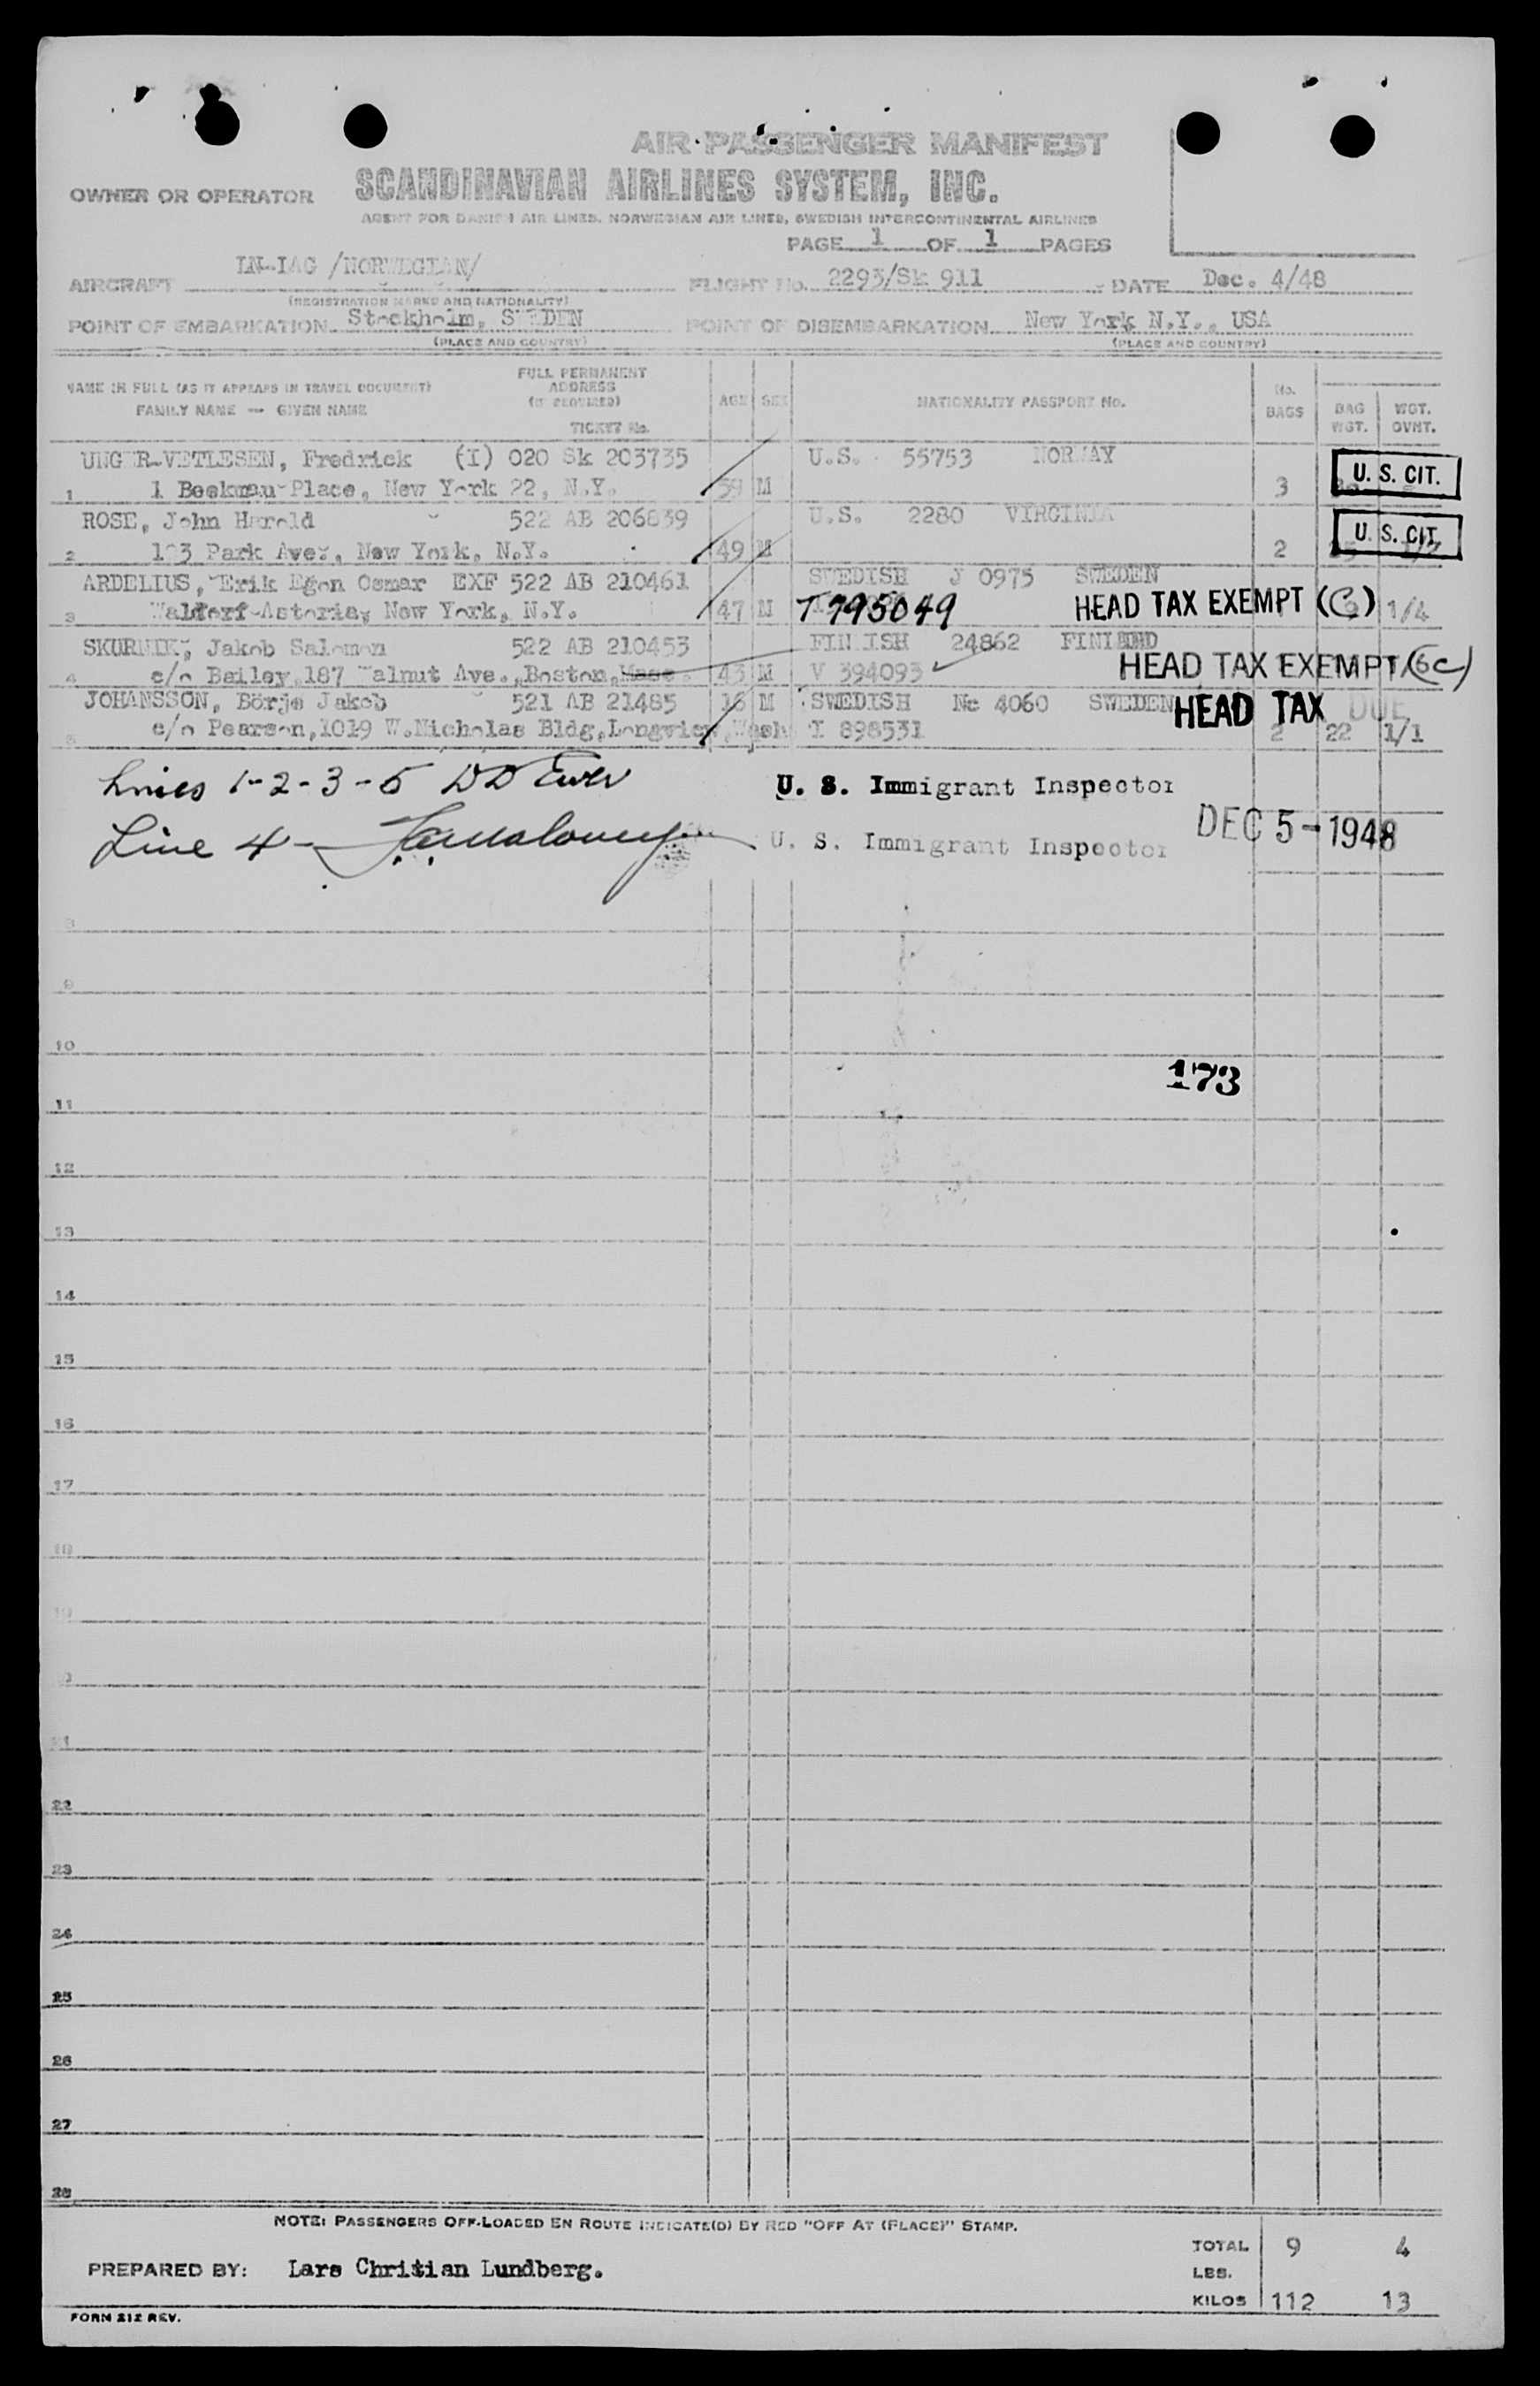 AIR PASSENGER MANIFEST
OWNER OR OPERATOR SCANDINAVIAN AIRLINES SYSTEM, INC.
AGENT FOR DANISH AIR LINES, NORWEGIAN AIR LINES, SWEDISH INTERCONTINENTAL AIRLINES
PAGE 1 OF 1 PAGES
AIRCRAFT LN-IAG /NORWEGIAN/ FLIGHT No. 2293/Sk 911 DATE Dec. 4/48
(REGISTRATION MARKS AND NATIONALITY)
POINT OF EMBARKATION Stockholm, SWEDEN POINT OF DISEMBARKATION New York N.Y., USA
(PLACE AND COUNTRY) (PLACE AND COUNTRY)
NAME IN FULL (AS IT APPEARS IN TRAVEL DOCUMENT) FULL PERMANENT ADDRESS (IF REQUIRED)
FAMILY NAME — GIVEN NAME TICKET No. AGE SEX NATIONALITY PASSPORT No. No. BAGS BAG WGT. WGT. OVHT.
UNGER-VETLESEN, Fredrick (I) 020 Sk 203735 U.S. 55753 NORWAY
1 1 Beekman Place, New York 22, N.Y. 59 M 3 U. S. CIT.
ROSE, John Harold 522 AB 206839 U.S. 2280 VIRGINIA
2 Park Ave., New York, N.Y. 49 M 2 U. S. CIT.
ARDELIUS, Erik Egon Osmar EXF 522 AB 210461 SWEDISH J 0975 SWEDEN
3 Waldorf-Astoria, New York, N.Y. 47 M T 795049 HEAD TAX EXEMPT (C) 1/4
SKURNIK, Jakob Salomon 522 AB 210453 FINNISH 24862 FINLAND
4 c/o Bailey,187 Walnut Ave.,Boston,Mass. 43 M V 394093 HEAD TAX EXEMPT (6C)
JOHANSSON, Börje Jakob 521 AB 21485 16 M SWEDISH No 4060 SWEDEN HEAD TAX DUE
5 c/o Pearson,1019 W.Nicholas Bldg,Longview,Wash I 898531 2 22 1/1
Lines 1-2-3-5 U. S. Immigrant Inspector
Line 4- U. S. Immigrant Inspector DEC 5-1948
8
9
10
173
11
12
13
14
15
16
17
18
19
20
21
22
23
24
25
26
27
28
NOTE: PASSENGERS OFF-LOADED EN ROUTE INDICATE(D) BY RED "OFF AT (PLACE)" STAMP.
TOTAL 9 4
PREPARED BY: Lars Chritian Lundberg.
LBS.
KILOS 112 13
FORM 212 REV.